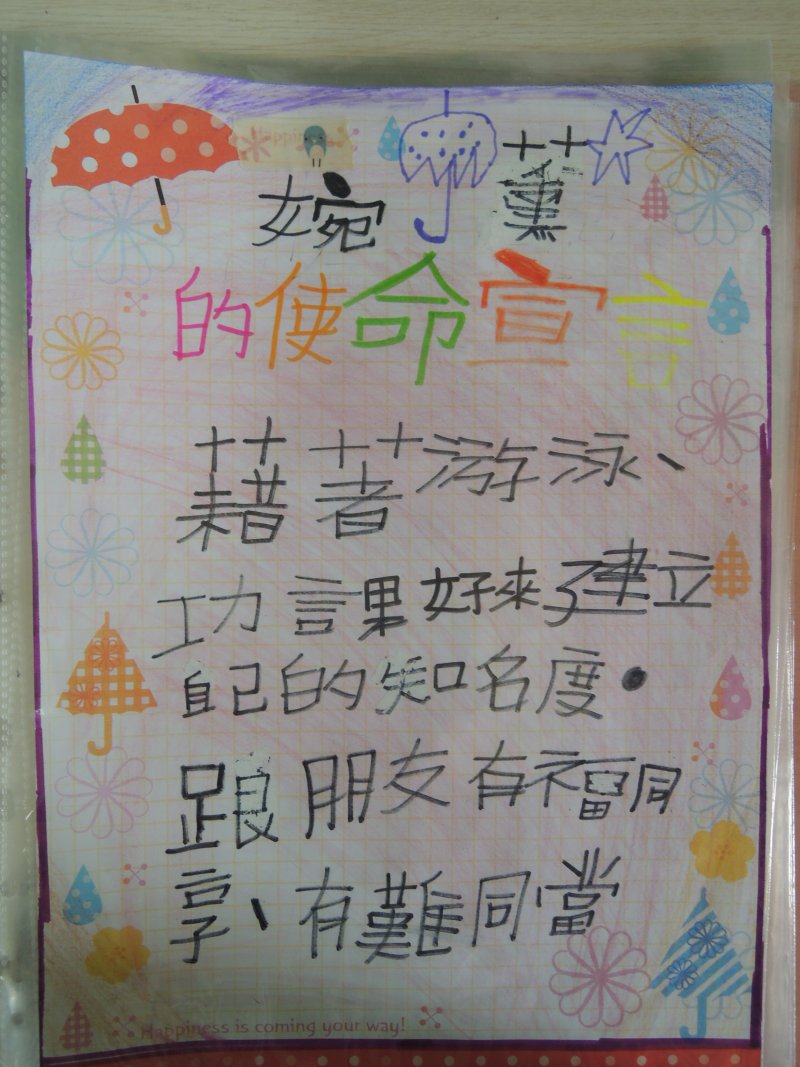 Happin
婉薰
的使命宣言
藉著游泳、
功課好來建立
自己的知名度。
跟朋友有福同
享、有難同當
Happiness is coming your way!